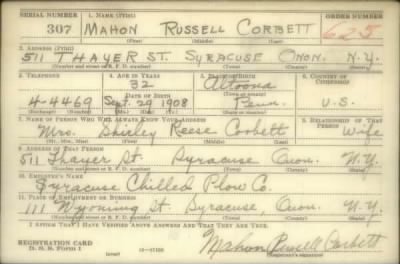 SERIAL NUMBER 1. NAME (Print) ORDER NUMBER
307 MAHON RUSSELL CORBETT 625
(First) (Middle) (Last)
2. ADDRESS (Print)
511 THAYER ST. SYRACUSE ONON. N.Y.
(Number and street or R. F. D. number) (Town) (County) (State)
3. TELEPHONE 4. AGE IN YEARS 5. PLACE OF BIRTH 6. COUNTRY OF CITIZENSHIP
32 Altoona
DATE OF BIRTH (Town or county)
4-4469 Sept. 29 1908 Penn. U.S.
(Exchange) (Number) (Mo.) (Day) (Yr.) (State or country)
7. NAME OF PERSON WHO WILL ALWAYS KNOW YOUR ADDRESS 8. RELATIONSHIP OF THAT PERSON
Mrs. Shirley Reese Corbett Wife
(Mr., Mrs., Miss) (First) (Middle) (Last)
9. ADDRESS OF THAT PERSON
511 Thayer St. Syracuse Onon. N.Y.
(Number and street or R. F. D. number) (Town) (County) (State)
10. EMPLOYER'S NAME
Syracuse Chilled Plow Co.
11. PLACE OF EMPLOYMENT OR BUSINESS
111 Wyoming St. Syracuse, Onon. N.Y.
(Number and street or R. F. D. number) (Town) (County) (State)
I AFFIRM THAT I HAVE VERIFIED ABOVE ANSWERS AND THAT THEY ARE TRUE.
REGISTRATION CARD
D. S. S. Form 1 (over) Mahon Russell Corbett
(Registrant's signature)